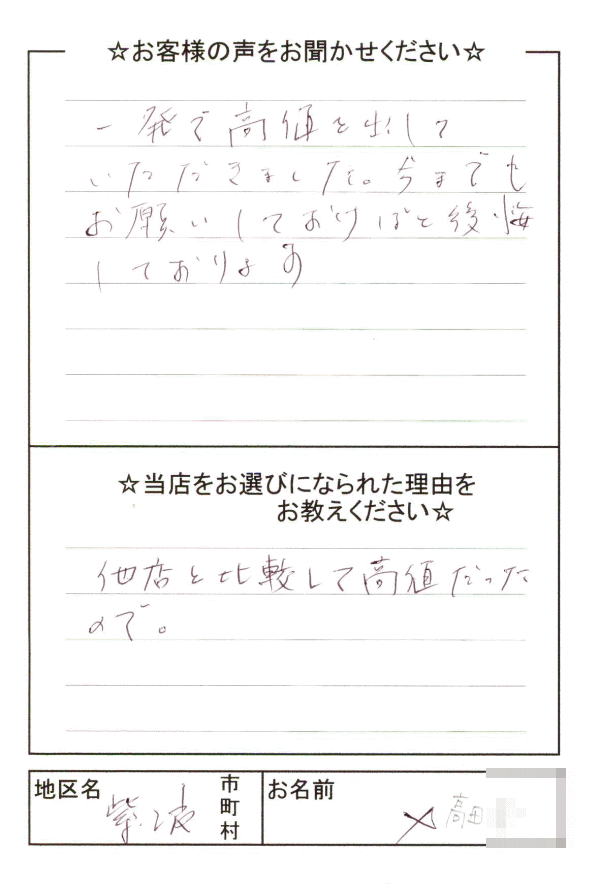 ☆お客様の声をお聞かせください☆
一発で高値を出して
いただきました。今までも
お願いしておけばと後悔
しております
☆当店をお選びになられた理由を
お教えください☆
他店と比較して高値だった
ので。
地区名 紫波 市町村 お名前 高田